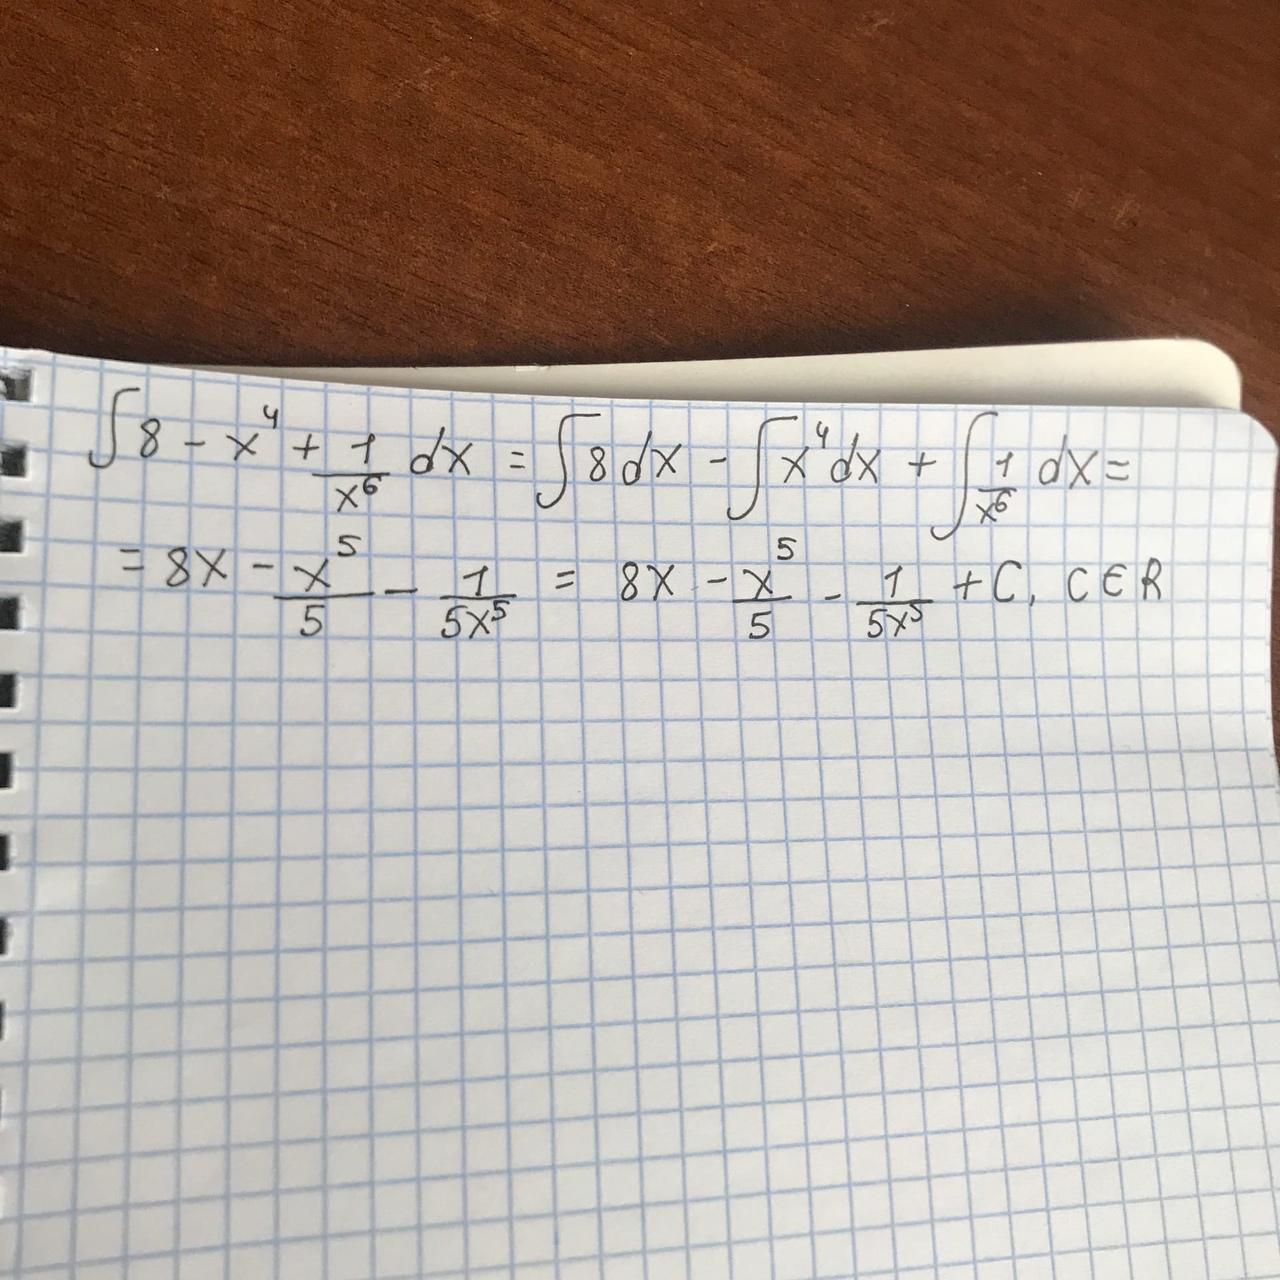 ∫ 8 - x⁴ + 1/x⁶ dx = ∫ 8 dx - ∫ x⁴ dx + ∫ 1/x⁶ dx =
= 8x - x⁵/5 - 1/5x⁵ = 8x - x⁵/5 - 1/5x⁵ + C, C ∈ R